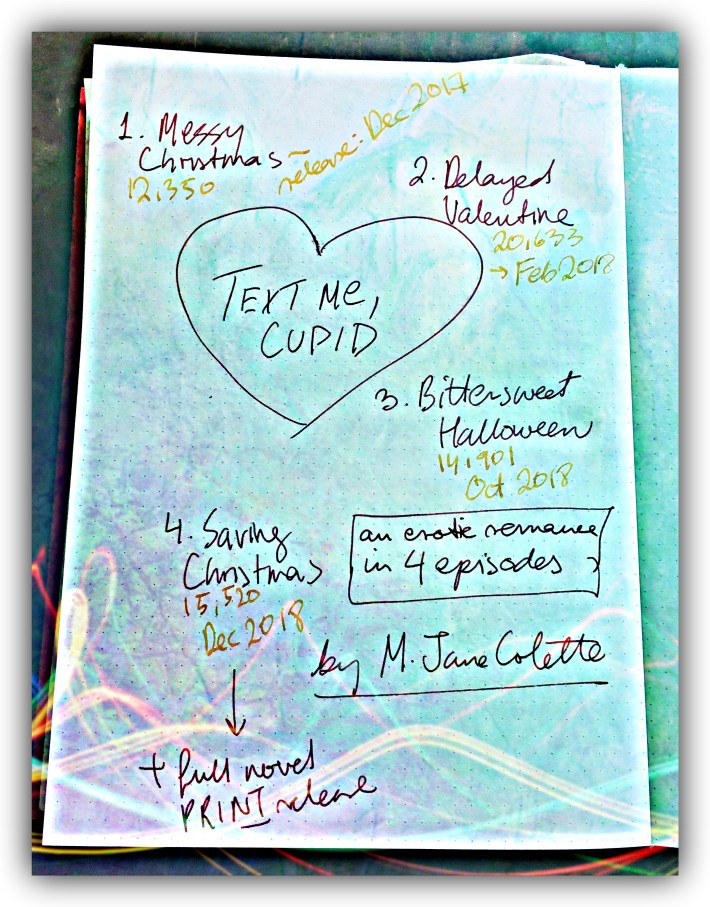 1. Messy
Christmas ~
12,350
release: Dec 2017
2. Delayed
Valentine
20,633
→ Feb 2018
TEXT Me,
CUPID
3. Bittersweet
Halloween
14,901
Oct 2018
4. Saving
Christmas
15,520
Dec 2018
an erotic romance
in 4 episodes
by M. Jane Colette
+ full novel
PRINT release